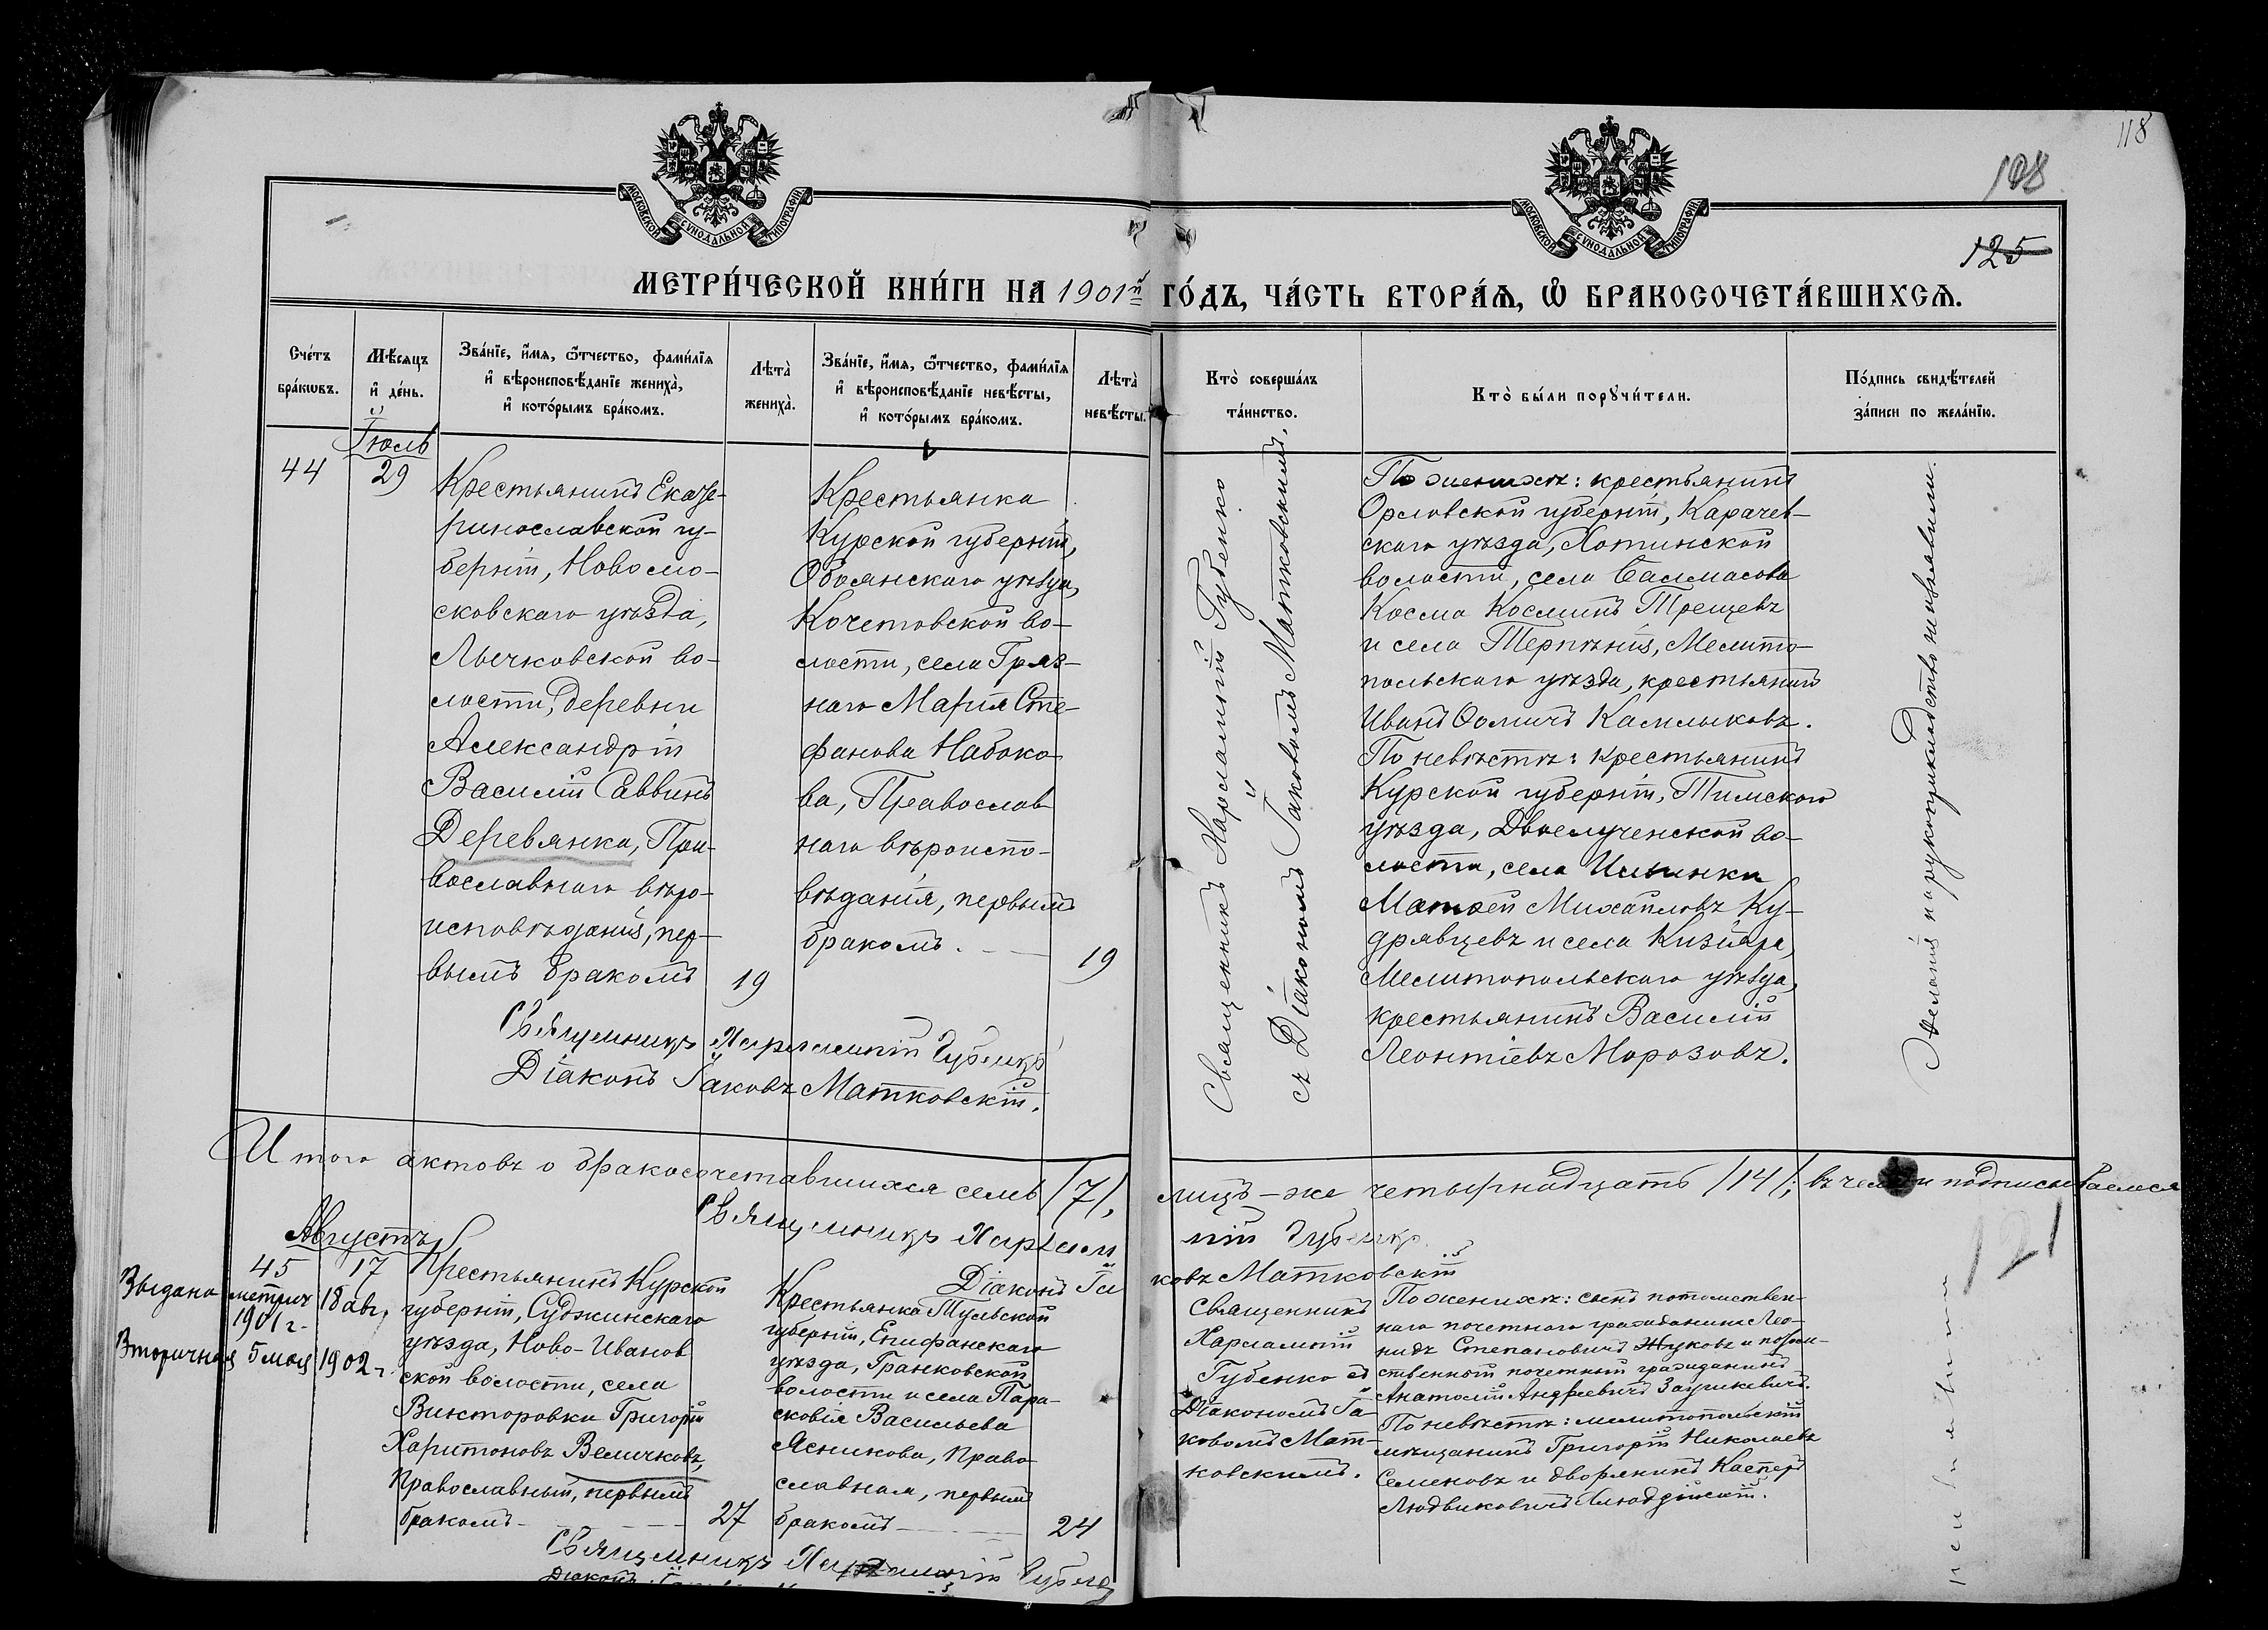 118
108
125
МОСКОВСКОЙ СѴНОДАЛЬНОЙ ТИПОГРАФІИ
МОСКОВСКОЙ СѴНОДАЛЬНОЙ ТИПОГРАФІИ
МЕТРИ́ЧЕСКОЙ КНИ́ГИ НА 1901й ГО́ДЪ, ЧА́СТЬ ВТОРА́Ѧ, Ѽ БРАКОСОЧЕТА́ВШИХСѦ.
Сче́тъ
бра́кѡвъ.
Мѣ́сѧцъ
и҆ де́нь.
Зва́нїе, и҆́мѧ, ѻ҆́тчество, фамѝлїѧ
и҆ вѣроисповѣ́данїе жениха̀,
и҆ кото́рымъ бра́комъ.
Лѣта̀
жениха̀.
Зва́нїе, и҆́мѧ, ѻ҆́тчество, фамѝлїѧ
и҆ вѣроисповѣ́данїе невѣ́сты,
и҆ кото́рымъ бра́комъ.
Лѣта̀
невѣ́сты.
Кто̀ соверша́лъ
та́инство.
Кто̀ бы́ли порꙋчи́тели.
По́дпись свидѣ́телей
за́писи по жела́нїю.
Іюль
44
29
Крестьянинъ Екате-
ринославской гу-
берніи, Новомо-
сковскаго уѣзда,
Лычковской во-
лости, деревни
Александріи
Василій Саввинъ
Деревянка, Пра-
вославнаго вѣро-
исповѣданія, пер-
вымъ бракомъ
19
Крестьянка
Курской губерніи,
Обоянскаго уѣзда,
Кочетовской во-
лости, села Гряз-
наго Марія Сте-
фанова Набоко-
ва, Православ-
наго вѣроиспо-
вѣданія, первымъ
бракомъ.
19
Священникъ Харлампій Губенко
съ Діакономъ Іаковомъ Матковскимъ.
По женихѣ: крестьянинъ
Орловской губерніи, Карачев-
скаго уѣзда, Хотинской
волости, села
Косма Косминъ Трещевъ
и села Терпѣнія, Мелито-
польскаго уѣзда, крестьянинъ
Иванъ Ѳомичъ Камлыковъ.
По невѣстѣ: крестьянинъ
Курской губерніи, Тимскаго
уѣзда, Двоелученской во-
лости, села Ильинки
Матѳей Михайловъ Ку-
дрявцевъ и села Кизіяра,
Мелитопольскаго уѣзда,
крестьянинъ Василій
Леонтіевъ Морозовъ.
Желанія на рукоприкладство не изъявили.
Священникъ Харлампій Губенко
Діаконъ Іаковъ Матковскій.
Итого актовъ о бракосочетавшихся семь /7/, лицъ-же четырнадцать /14/; въ чемъ и подписываемся
Священникъ Харлампій Губенко
Діаконъ Іаковъ Матковскій
121
Августъ
45
17
Выдана метрич 18 авг.
1901 г.
Вторичная 5 мая 1902 г.
Крестьянинъ Курской
губерніи, Суджинскаго
уѣзда, Ново-Иванов
ской волости, села
Викторовки Григорій
Харитоновъ Величковъ,
Православный, первымъ
бракомъ
27
Крестьянка Тульской
губерніи, Епифанскаго
уѣзда, Гранковской
волости и села Пара-
сковія Васильева
Ясникова, Право
славная, первымъ
бракомъ
24
Священникъ
Харлампій
Губенко съ
Діакономъ Іа-
ковомъ Мат-
ковскимъ.
По женихѣ: сынъ потомствен-
наго почетнаго гражданина Лео-
нидъ Степановичъ Жуковъ и потом-
ственный почетный гражданинъ
Анатолій Андреевичъ Заушкевичъ.
По невѣстѣ: мелитопольскій
мѣщанинъ Григорій Николаевъ
Семеновъ и дворянинъ Касперъ
Людвиковичъ
Священникъ Харлампій Губенко
Діаконъ